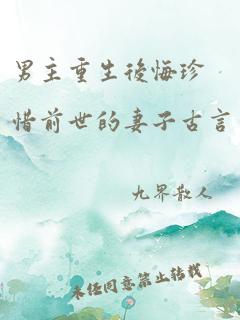 男主重生後悔珍
惜前世的妻子古言
九界散人
未经同意禁止转载